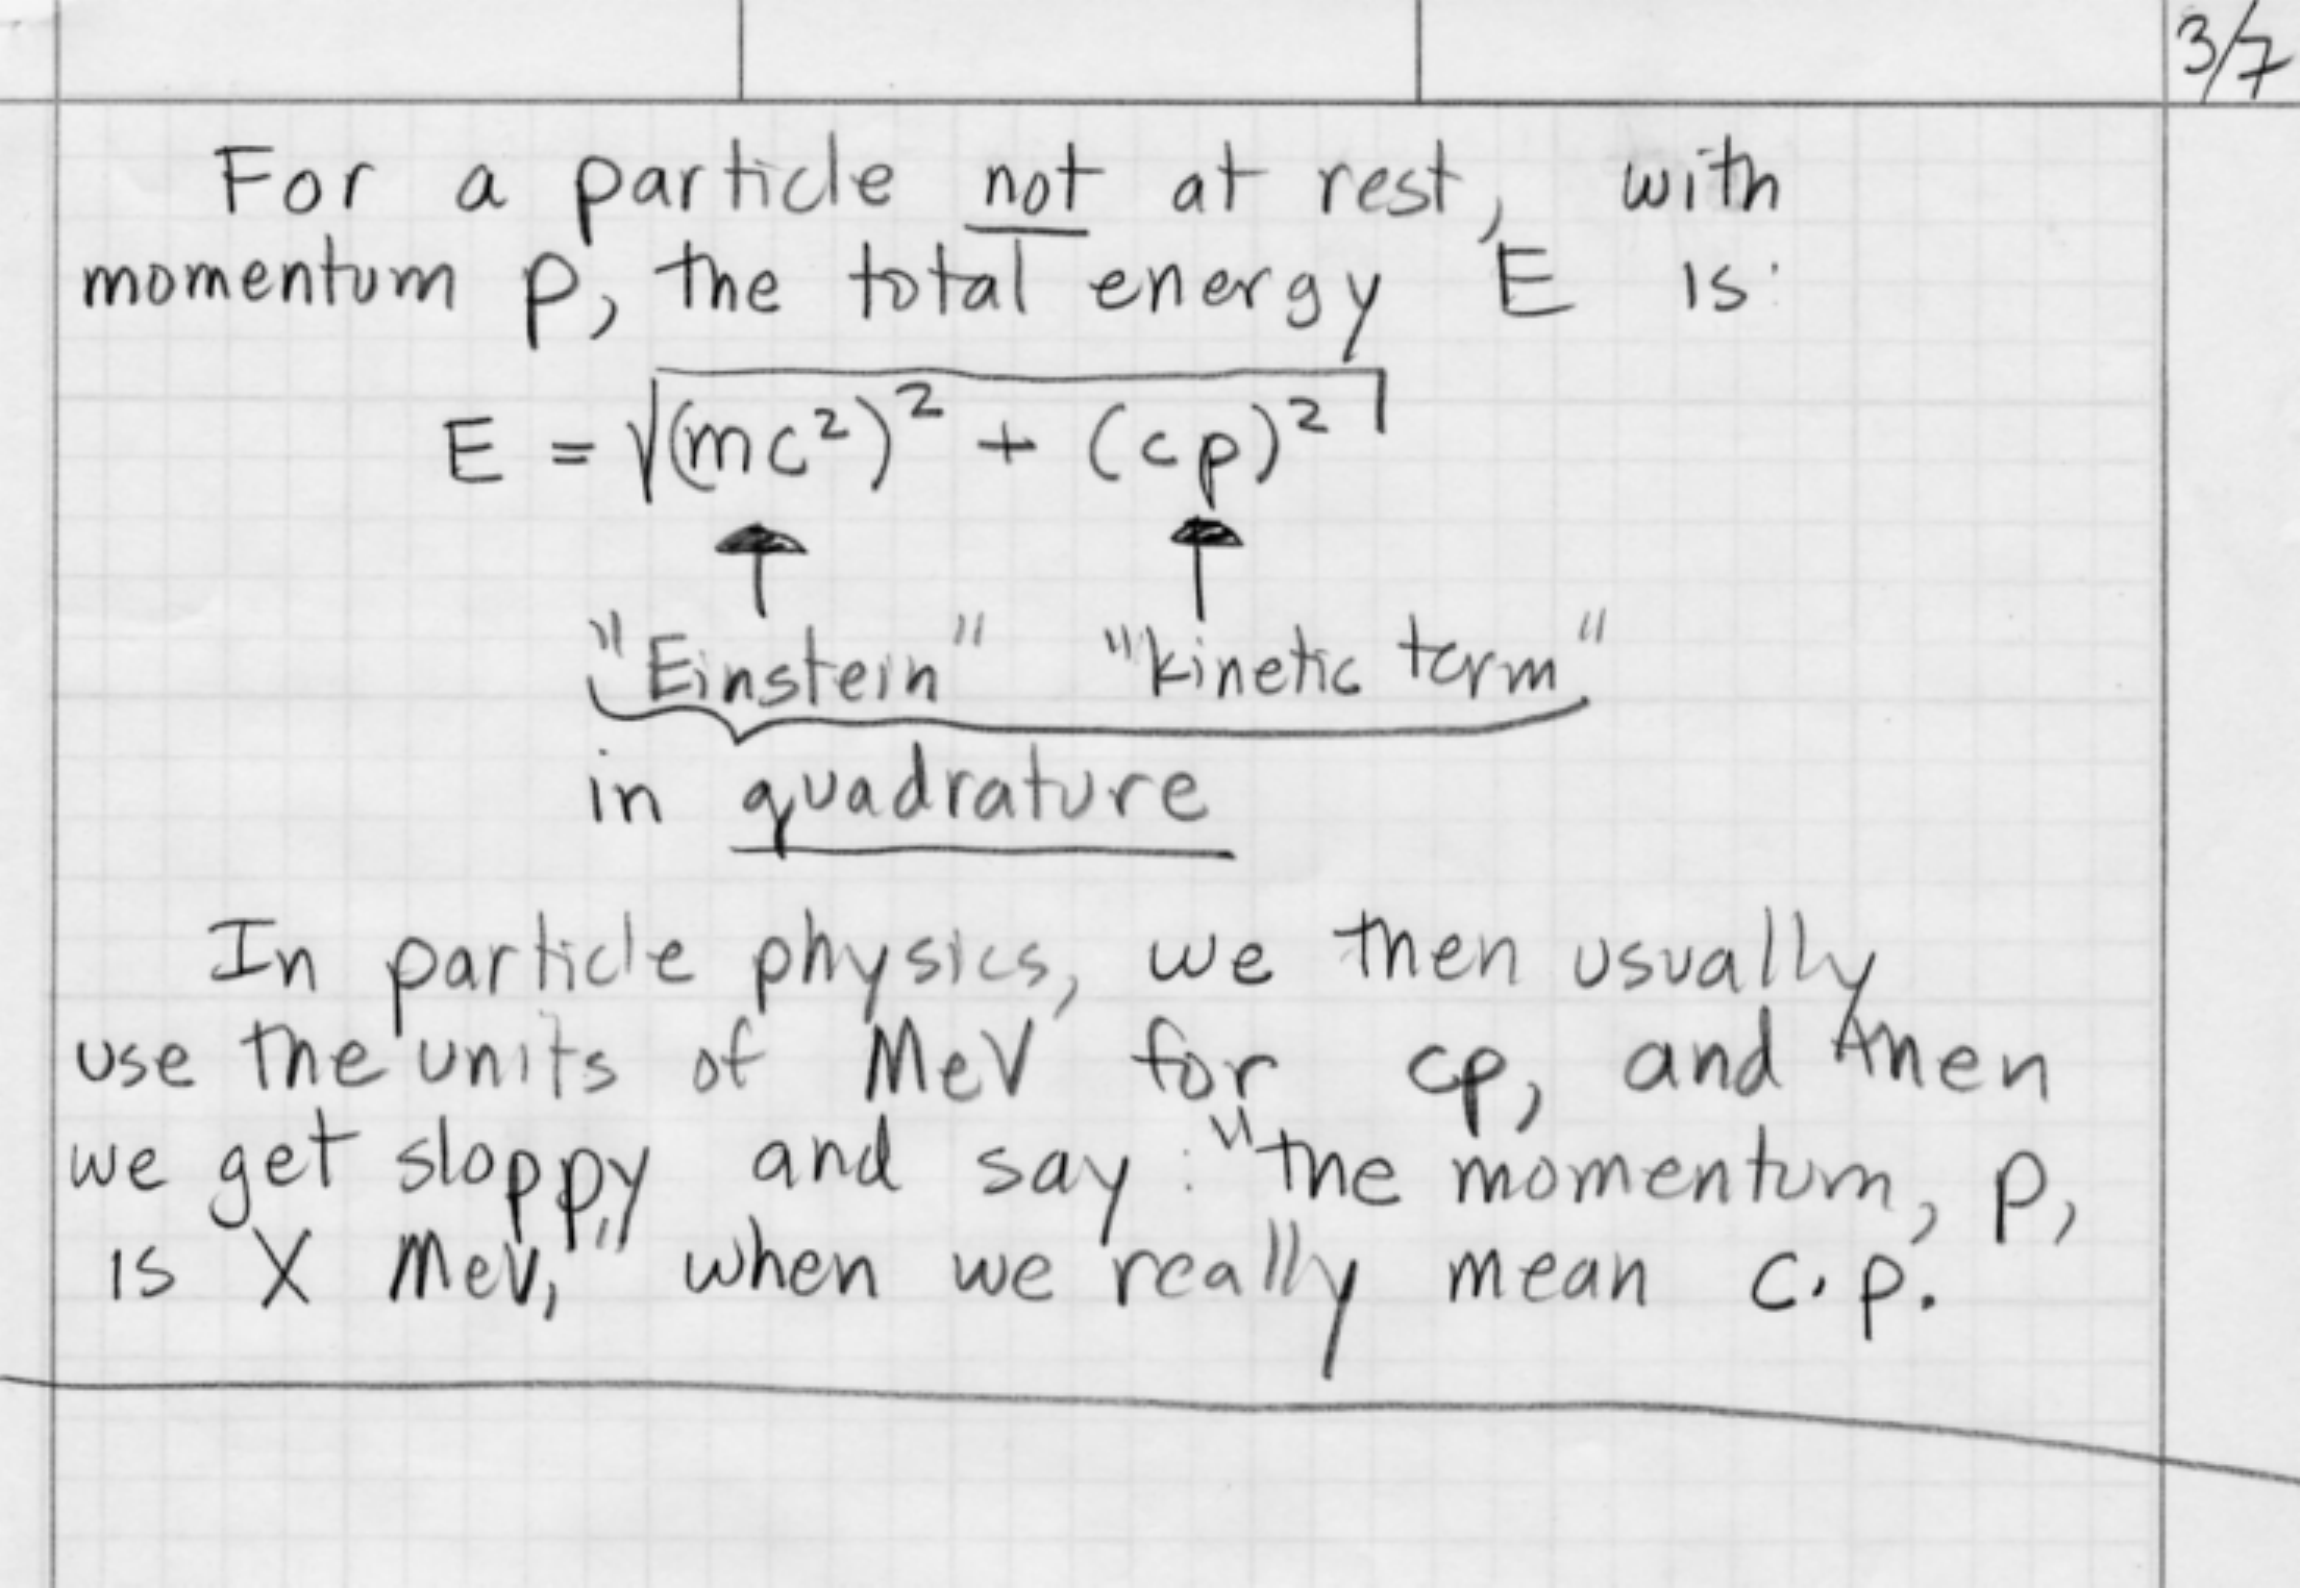 3/7
For a particle not at rest, with
momentum p, the total energy E is:
E = √(mc²)² + (cp)²
"Einstein" "kinetic term"
in quadrature
In particle physics, we then usually
use the units of MeV for cp, and then
we get sloppy and say: "the momentum, p,
is X MeV," when we really mean c·p.